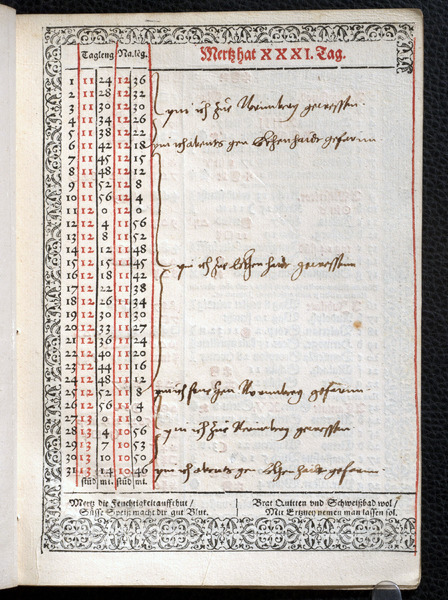 Tagleng Na.lēg. Mertz hat XXXI. Tag.
1 11 24 12 36
2 11 28 12 32
3 11 30 12 30 pin ich zue Nurmberg gewessen.
4 11 34 12 26
5 11 38 12 22
6 11 42 12 18 pin ich abents gen gefarnn.
7 11 45 12 15
8 11 48 12 12
9 11 52 12 8
10 11 56 12 4
11 12 0 12 0
12 12 4 11 56
13 12 8 11 52
14 12 12 11 48
15 12 15 11 45 pin ich zue gewessenn
16 12 18 11 42
17 12 22 11 38
18 12 26 11 34
19 12 30 11 30
20 12 33 11 27
21 12 36 11 24
22 12 40 11 20
23 12 44 11 16
24 12 48 11 12
25 12 52 11 8 pin ich Nurmberg gefarnn.
26 12 56 11 4
27 13 0 11 0
28 13 4 10 56 pin ich zue Nurmberg gewessen.
29 13 7 10 53
30 13 10 10 50
31 13 14 10 46 pin ich abents gen gefarnn.
stüd mi. stüd mi.
Mertz die Feuchtigkeit auffthut /
Süsse Speiß macht dir gut Blut.
Brat Quitten vnd Schweißbad wol /
Mit Ertzney nemen man lassen sol.